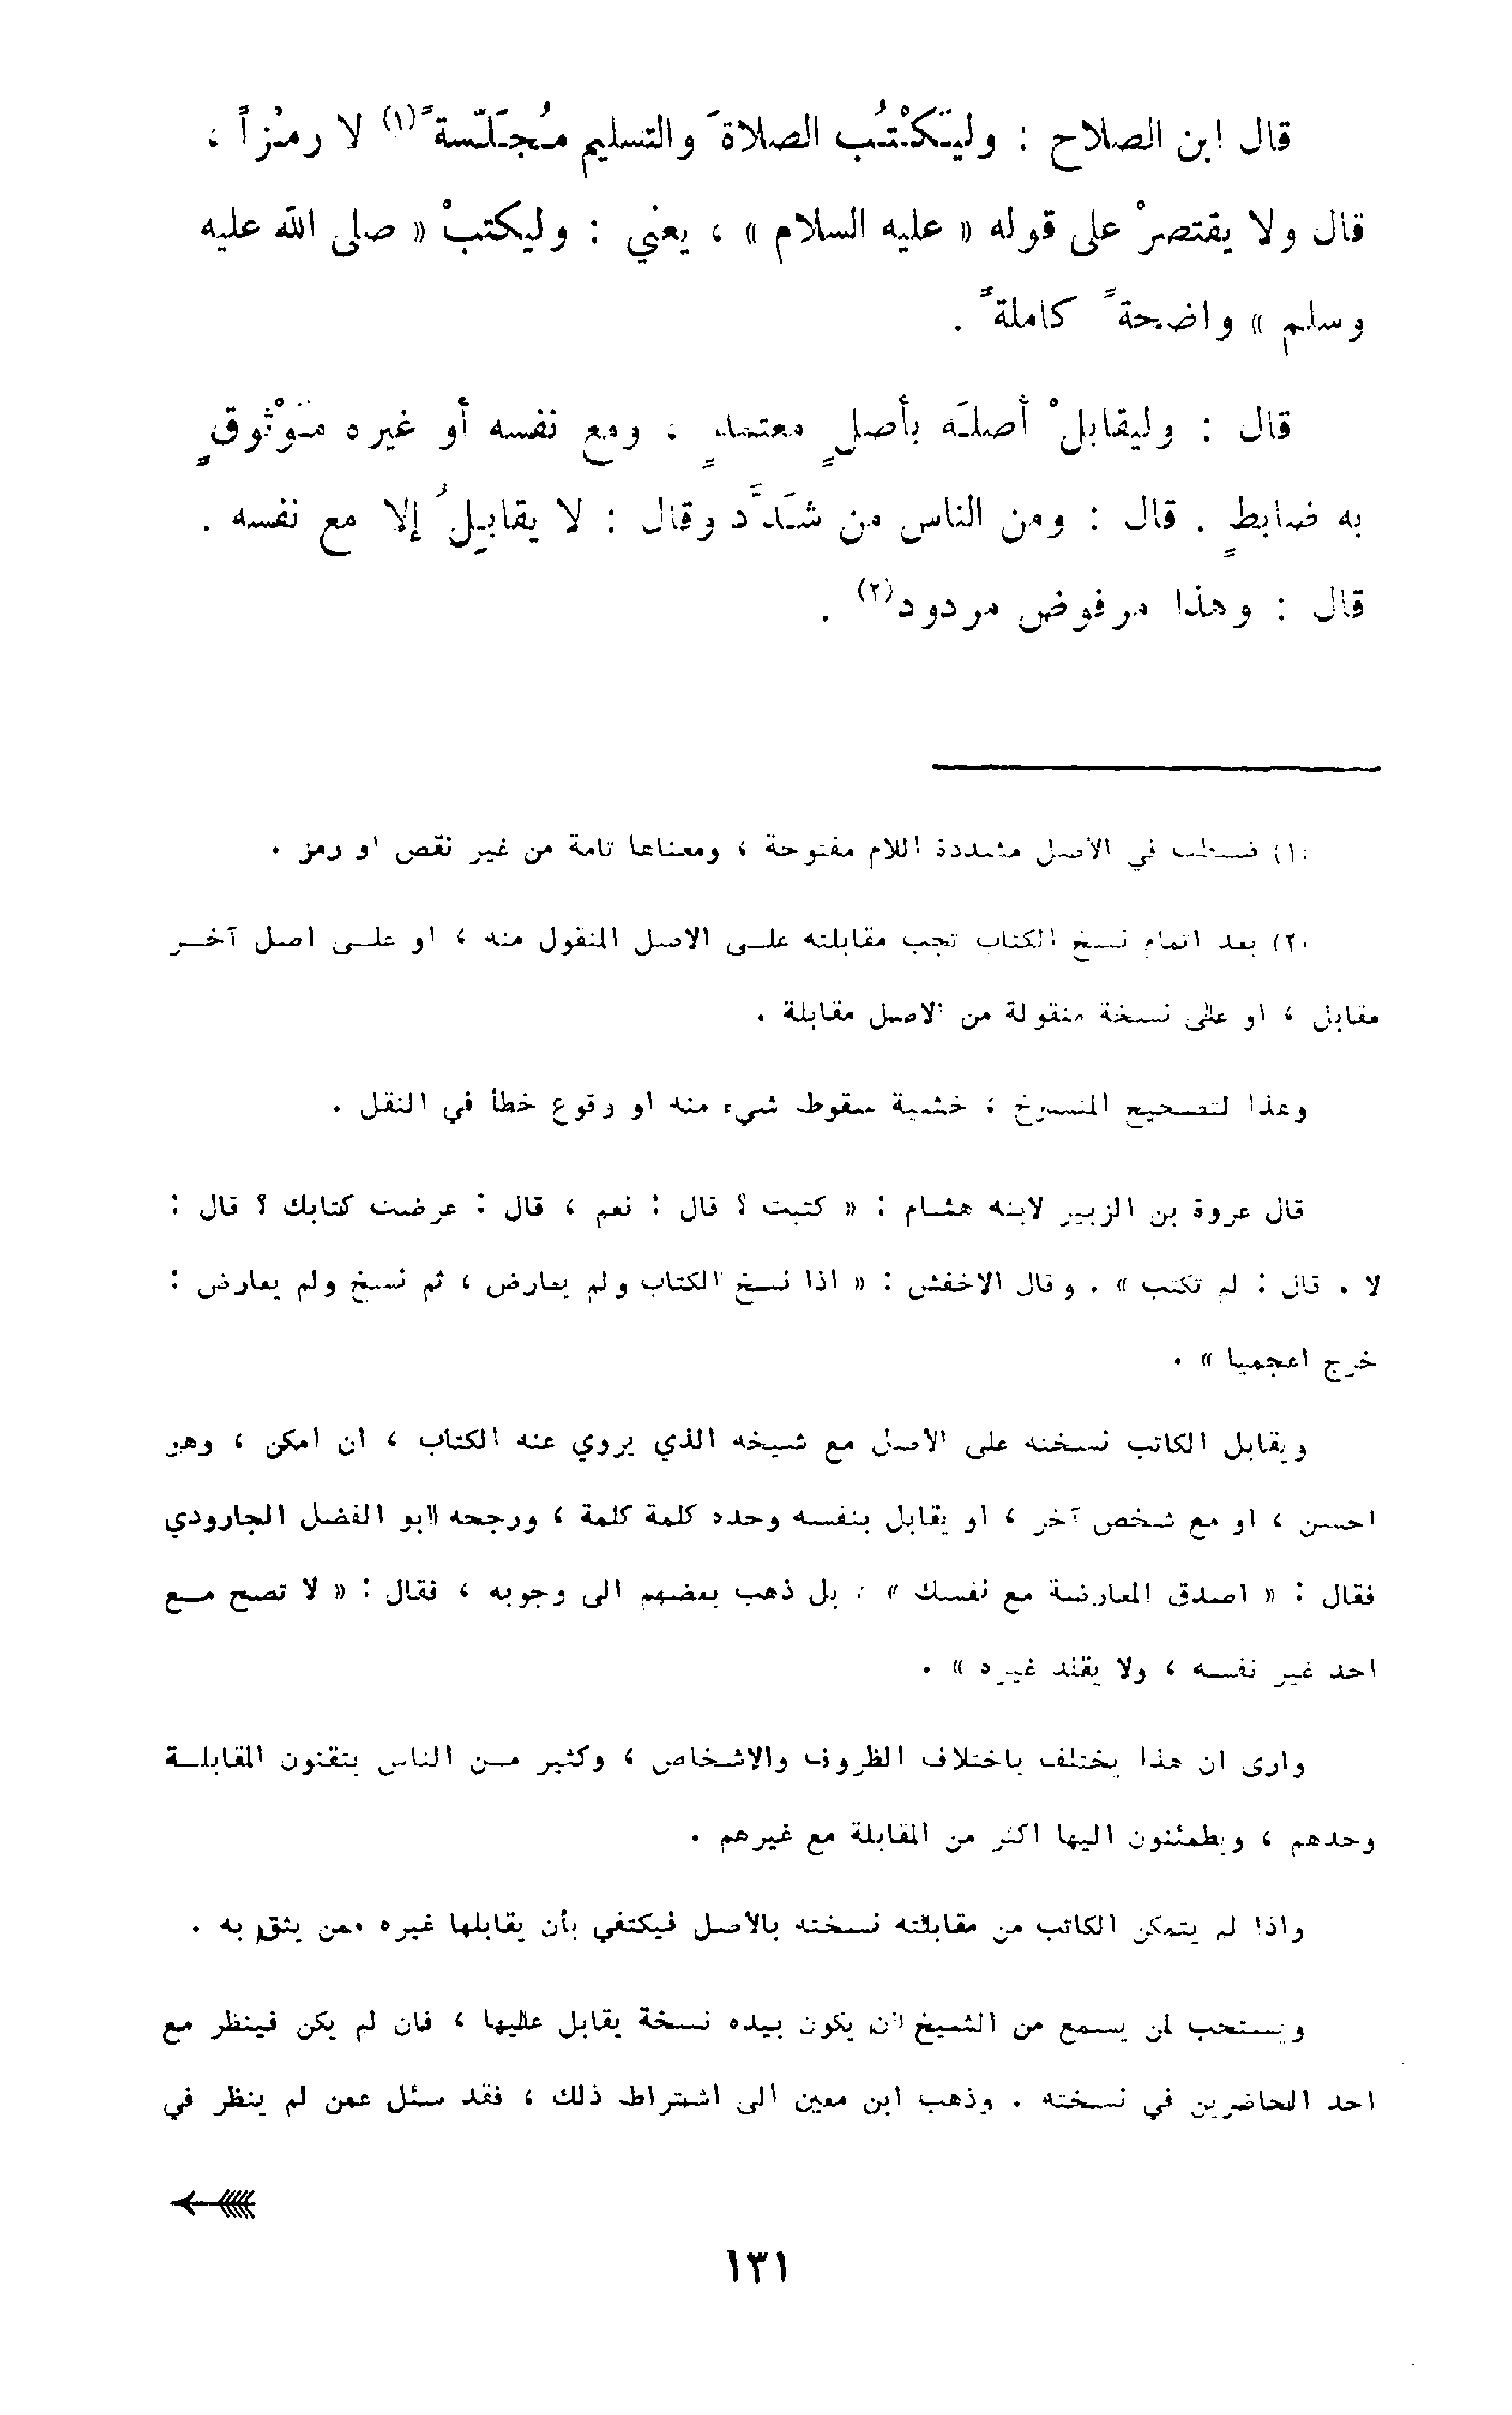 قال ابن الصلاح : وليَكْتُب الصلاةَ والتسليم مُجَلّسةً(١) لا رمْزاً ،
قال ولا يقتصرْ على قوله « عليه السلام » ، يعني : وليكتبْ « صلى الله عليه
وسلم » واضحةً كاملةً .
قال : وليقابلْ أصلَه بأصلٍ معتمدٍ ، ومع نفسه أو غيره مَوْثوقٍ
به ضابطٍ . قال : ومن الناس من شَدَّد وقال : لا يقابِلُ إلا مع نفسه .
قال : وهذا مرفوض مردود(٢) .
(١) ضبطت في الاصل مشددة اللام مفتوحة ، ومعناها تامة من غير نقص او رمز .
(٢) بعد اتمام نسخ الكتاب تجب مقابلته علـى الاصل المنقول منه ، او علـى اصل آخـر
مقابل ، او على نسخة منقولة من الاصل مقابلة .
وهذا لتصحيح المنسوخ ، خشية سقوط شيء منه او وقوع خطأ في النقل .
قال عروة بن الزبير لابنه هشام : « كتبت ؟ قال : نعم ، قال : عرضت كتابك ؟ قال :
لا . قال : لم تكتب » . وقال الاخفش : « اذا نسخ الكتاب ولم يعارض ، ثم نسخ ولم يعارض :
خرج اعجميا » .
ويقابل الكاتب نسخته على الاصل مع شيخه الذي يروي عنه الكتاب ، ان امكن ، وهو
احسن ، او مع شخص آخر ، او يقابل بنفسه وحده كلمة كلمة ، ورجحه ابو الفضل الجارودي
فقال : « اصدق المعارضة مع نفسك » ، بل ذهب بعضهم الى وجوبه ، فقال : « لا تصح مـع
احد غير نفسه ، ولا يقلد غيره » .
وارى ان هذا يختلف باختلاف الظروف والاشخاص ، وكثير مـن الناس يتقنون المقابلـة
وحدهم ، ويطمئنون اليها اكثر من المقابلة مع غيرهم .
واذا لم يتمكن الكاتب من مقابلته نسخته بالاصل فيكتفي بأن يقابلها غيره ممن يثق به .
ويستحب لمن يسمع من الشيخ ان يكون بيده نسخة يقابل عليها ، فان لم يكن فينظر مع
احد الحاضرين في نسخته . وذهب ابن معين الى اشتراط ذلك ، فقد سئل عمن لم ينظر في
١٣١